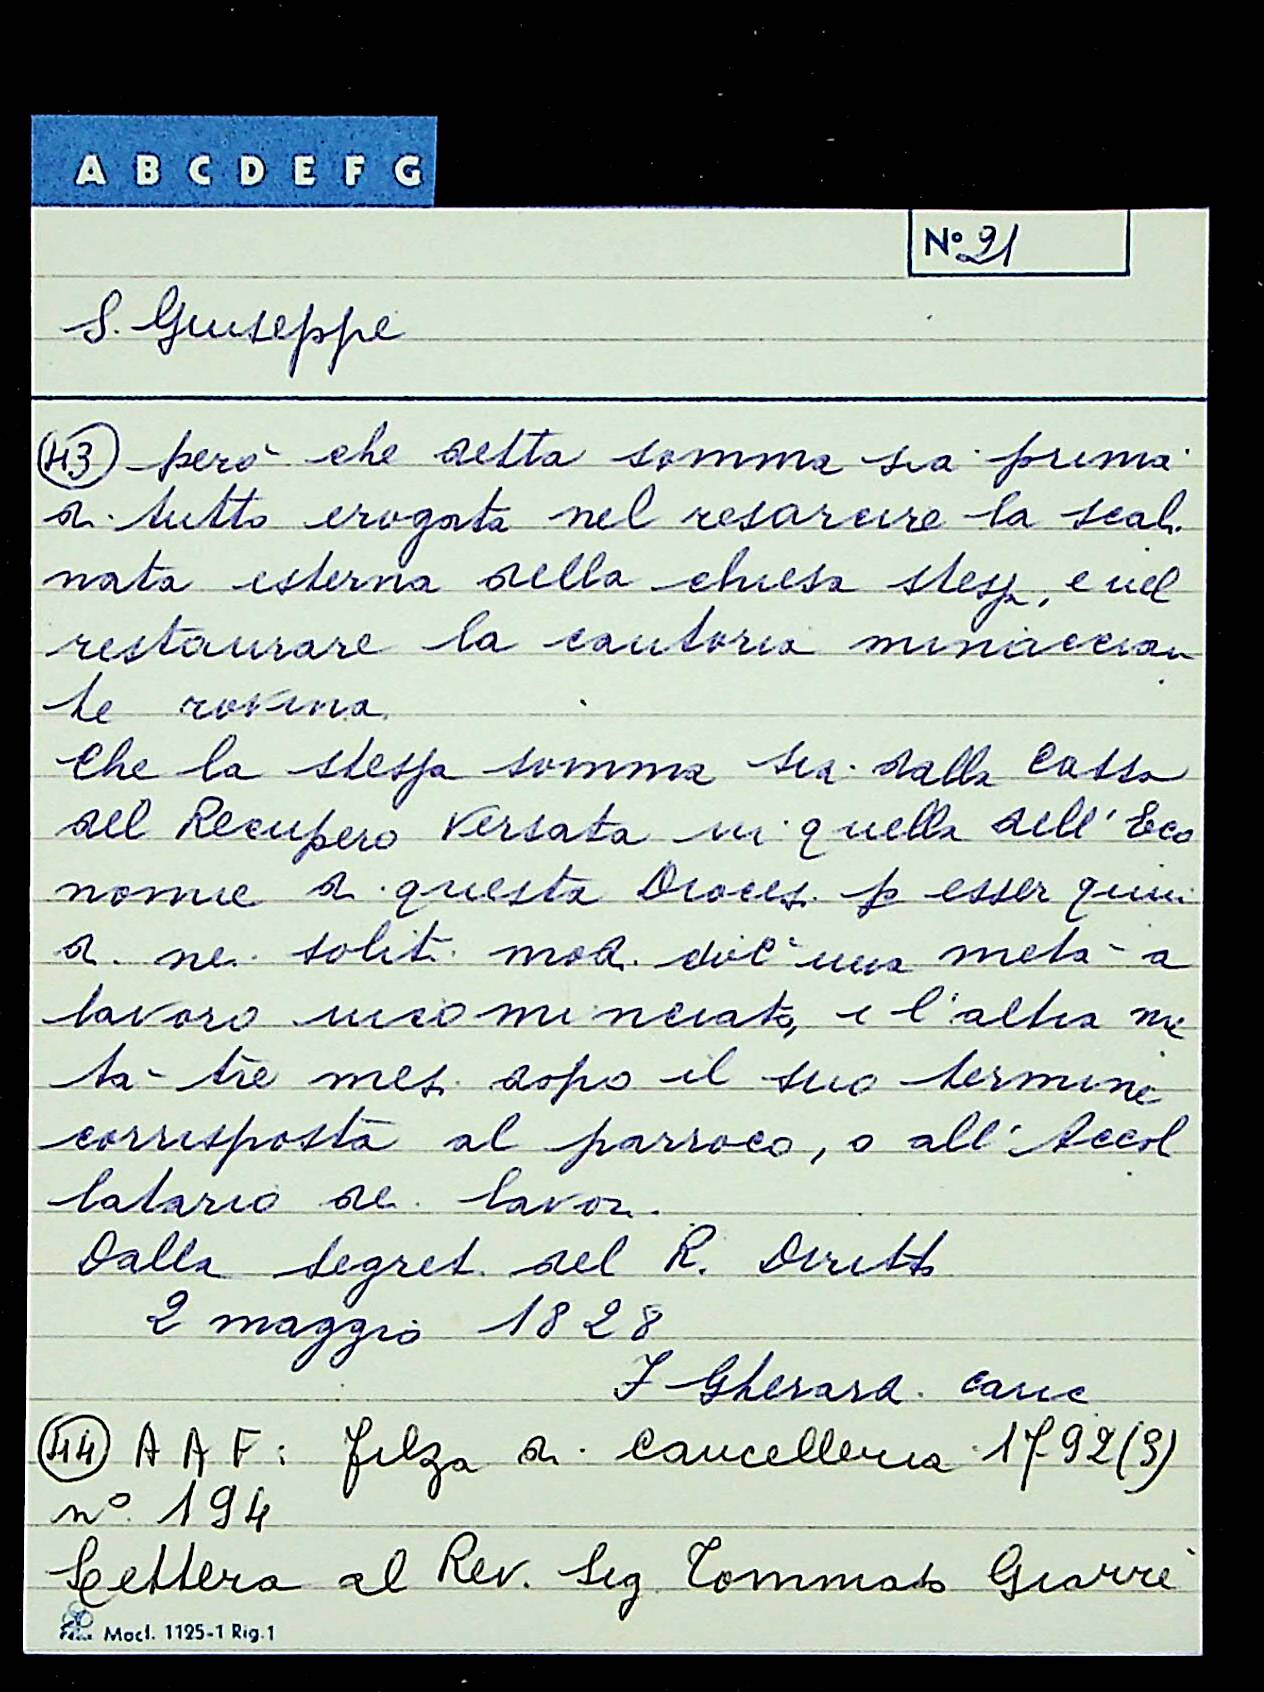 A B C D E F G
Nº 21
S. Giuseppe
(43) però che detta somma sia prima
di tutto erogata nel resarcire la scali
nata esterna della chiesa stessa, e nel
restaurare la cantoria minaccian
te rovina
Che la stessa somma sia dalla Cassa
del Recupero versata in quella dell'Eco
nomie di questa Diocesi p esser quin
di nei soliti modi div una metà a
lavoro incominciato, e l'altra me
tà tre mesi dopo il suo termine
corrisposta al parroco, o all'Accol
latario dei lavori.
Dalla segret. del R. Diritto
2 maggio 1828
F Gherardi canc
(44) A A F: filza di cancelleria 1792(3)
nº. 194
Lettera al Rev. Sig Tommaso Giarrè
Mod. 1125-1 Rig.1